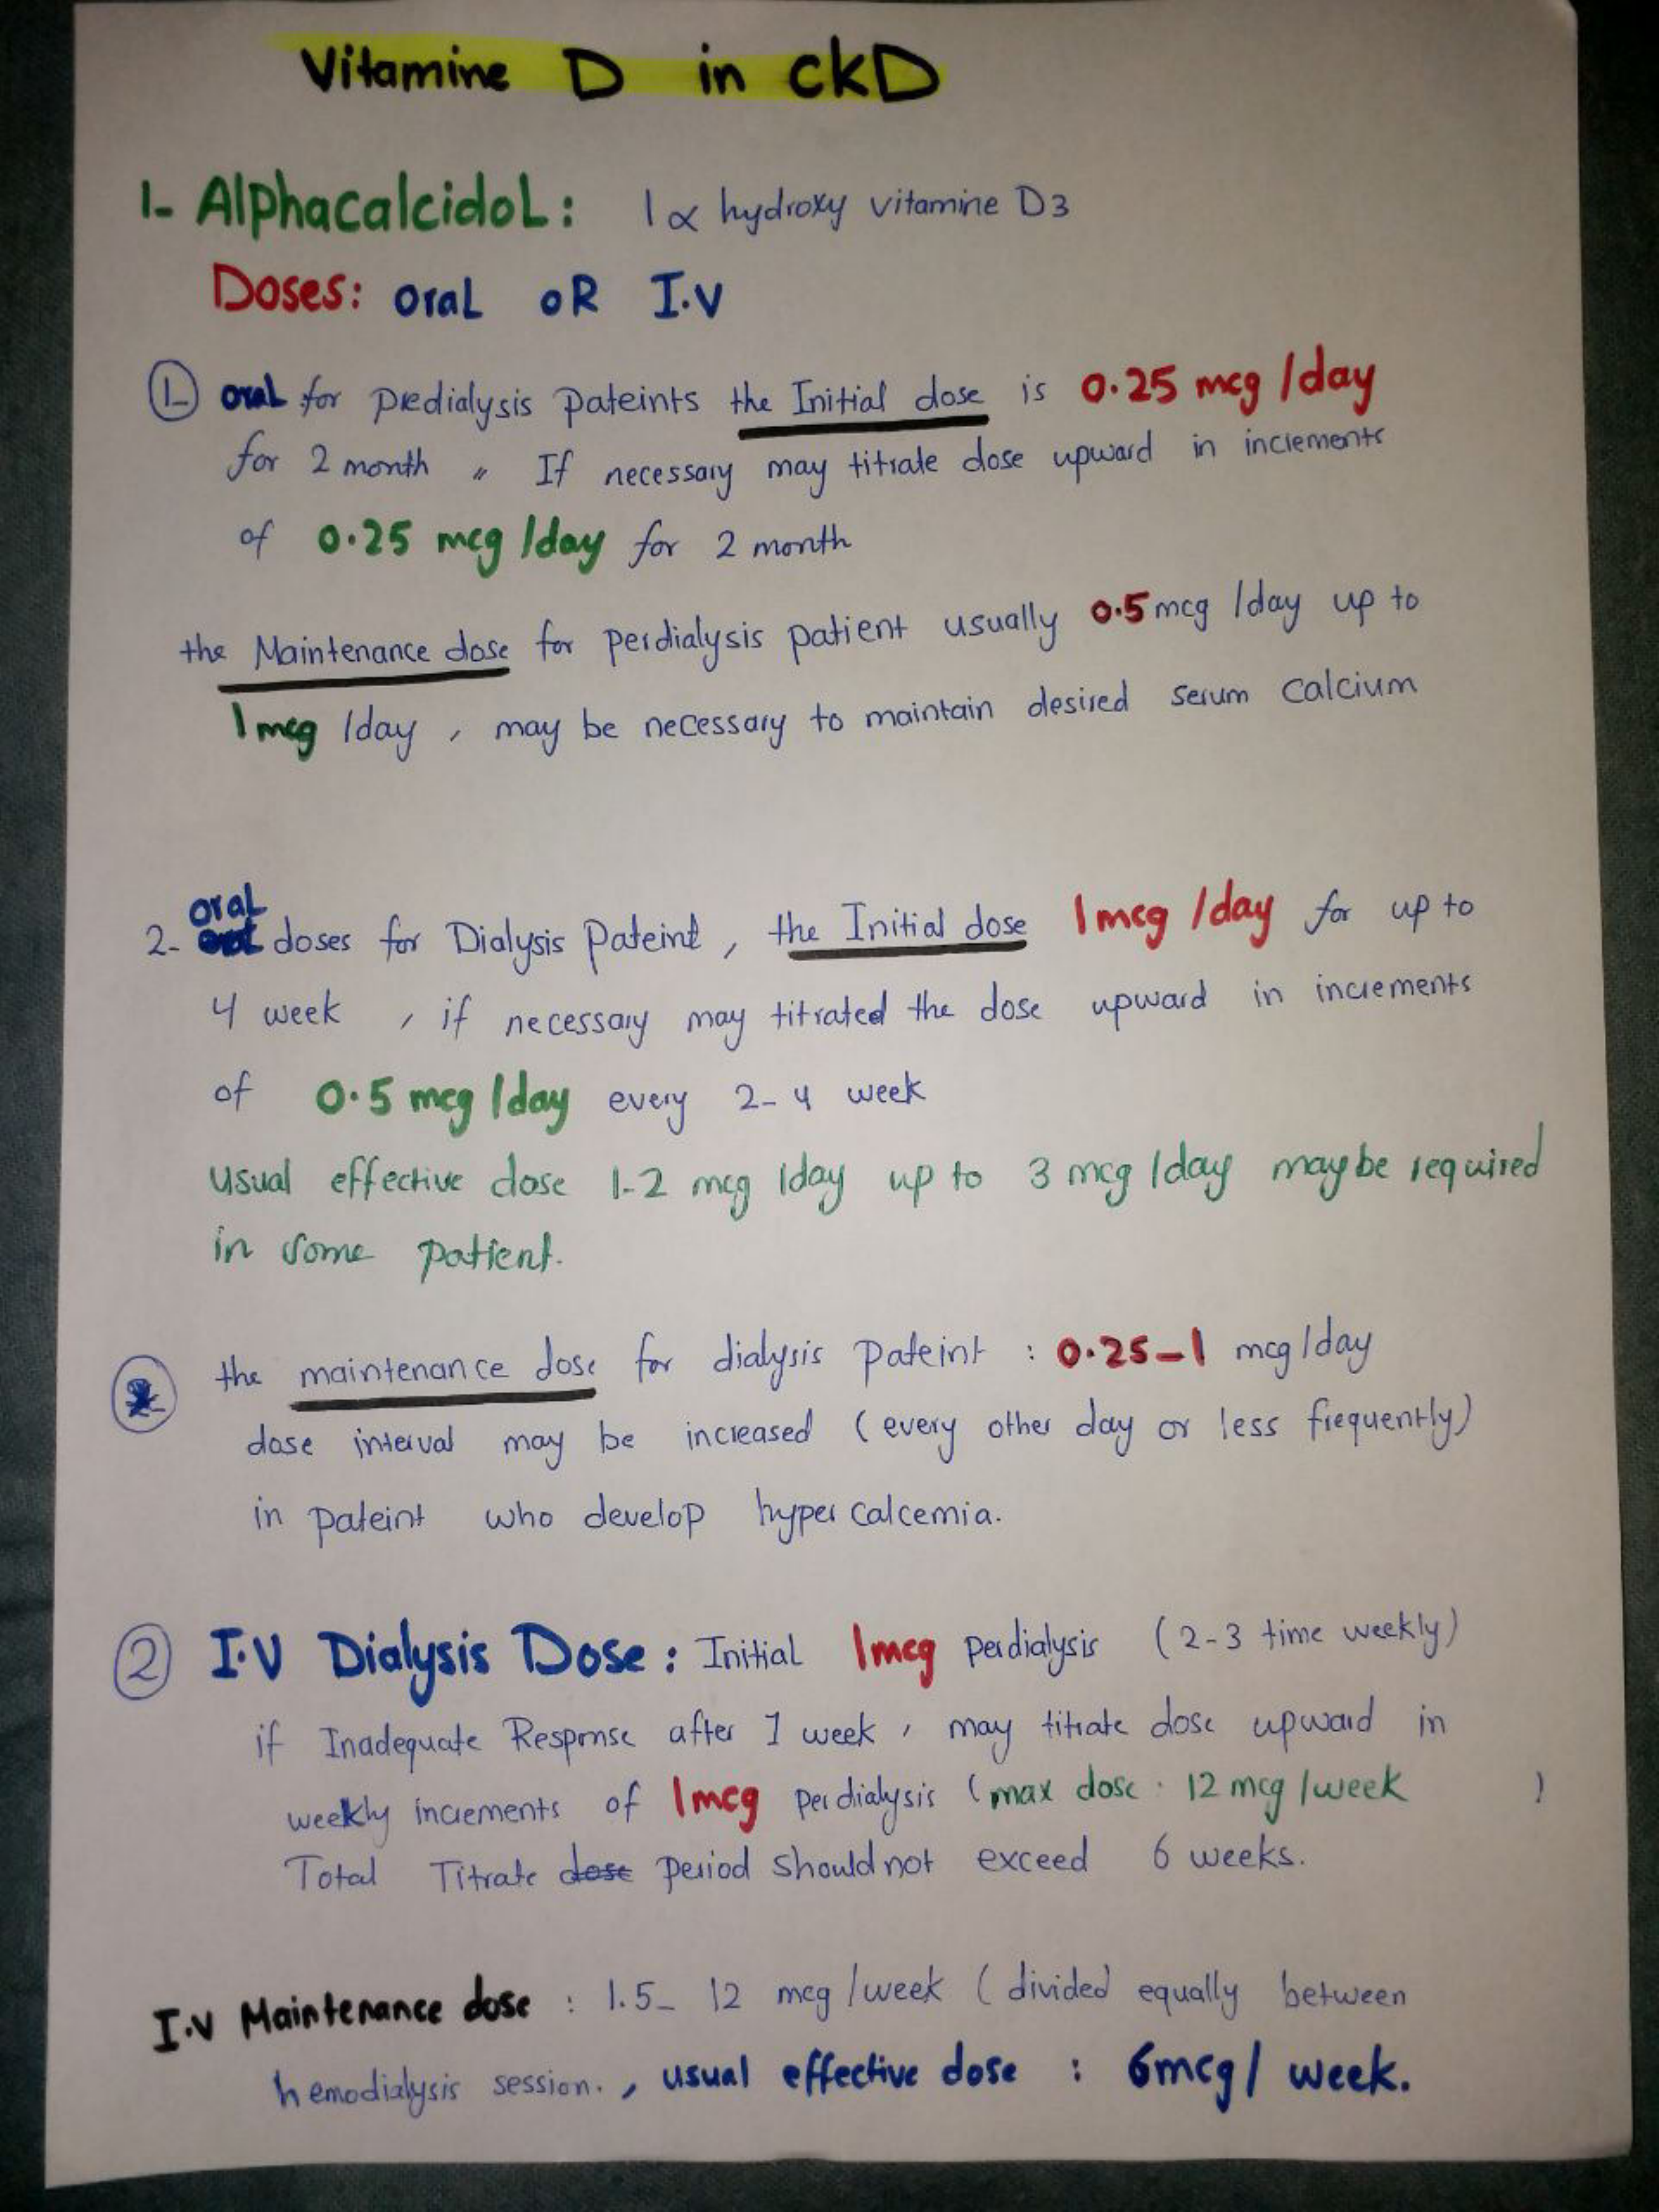 Vitamine D in CKD
1- AlphacalcidoL: 1α hydroxy vitamine D3
Doses: oral oR I.V
① oral for predialysis pateints the Initial dose is 0.25 mcg /day
for 2 month " If necessary may titrate dose upward in increments
of 0.25 mcg /day for 2 month
the Maintenance dose for perdialysis patient usually 0.5 mcg /day up to
1 mcg /day , may be necessary to maintain desired serum calcium
oral
2- doses for Dialysis Pateint , the Initial dose 1 mcg /day for up to
4 week , if necessary may titrated the dose upward in increments
of 0.5 mcg /day every 2-4 week
usual effective dose 1-2 mcg /day up to 3 mcg /day maybe required
in some patient.
the maintenance dose for dialysis pateint : 0.25-1 mcg/day
dose interval may be increased (every other day or less frequently)
in pateint who develop hyper calcemia.
② I.V Dialysis Dose : Initial 1mcg perdialysis (2-3 time weekly)
if Inadequate Response after 1 week , may titrate dose upward in
weekly increments of 1mcg perdialysis (max dose : 12 mcg /week )
Total Titrate dose period should not exceed 6 weeks.
I.V Maintenance dose : 1.5- 12 mcg /week (divided equally between
hemodialysis session. , usual effective dose : 6mcg/ week.